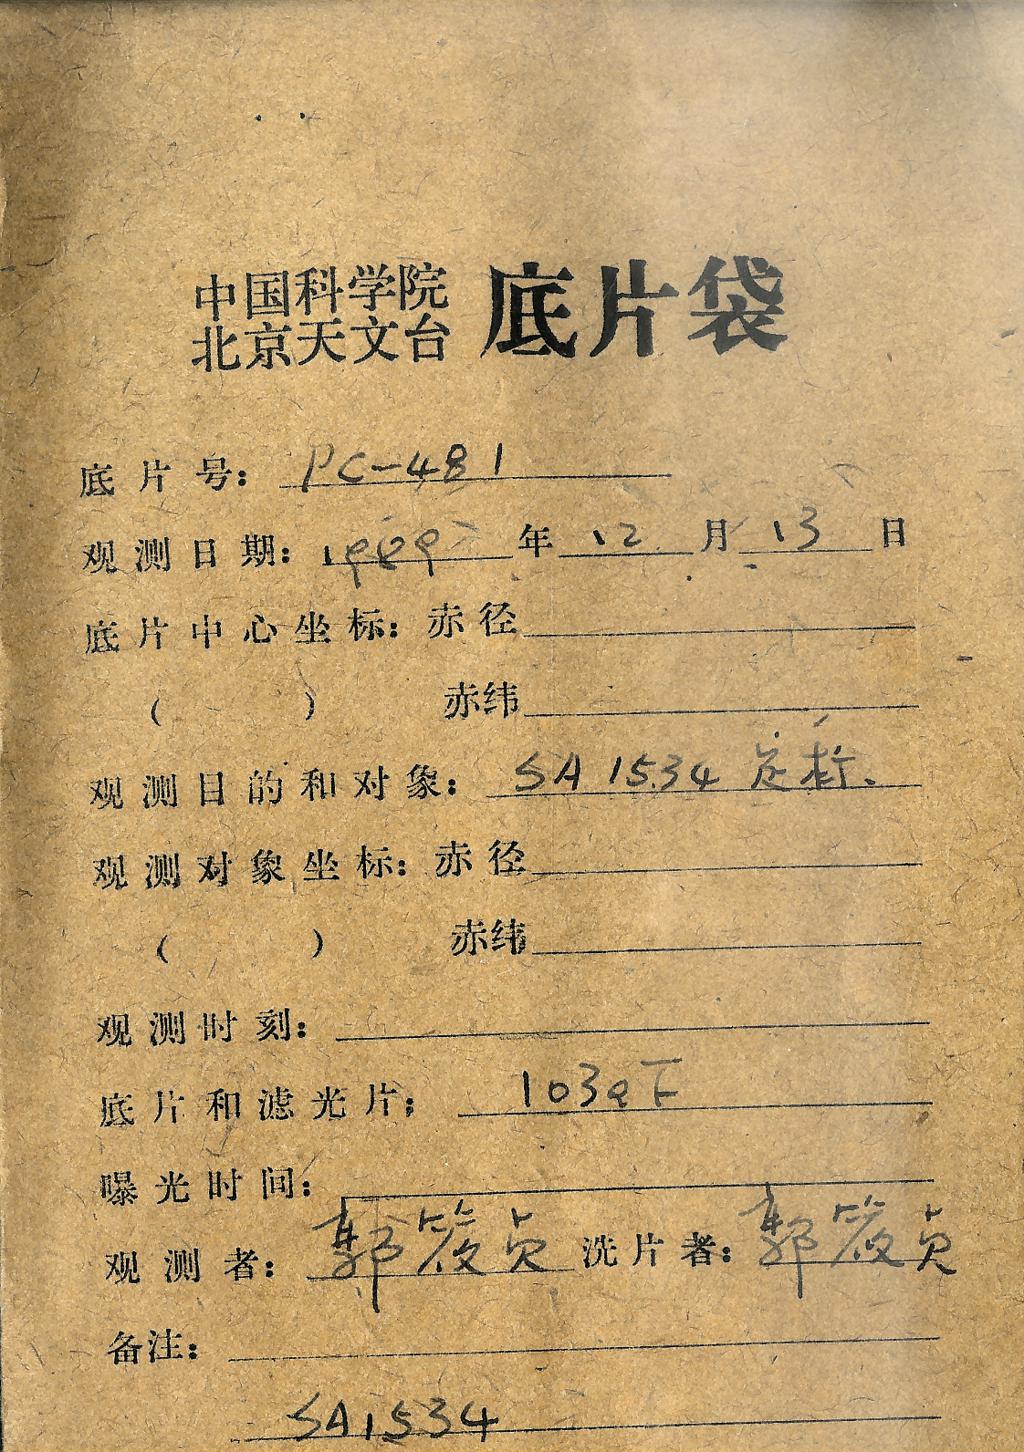 中国科学院
北京天文台 底片袋
底片号: PC-481
观测日期: 1989年12月13日
底片中心坐标: 赤径
( ) 赤纬
观测目的和对象: SA 1534 定标.
观测对象坐标: 赤径
( ) 赤纬
观测时刻:
底片和滤光片: 103aF
曝光时间:
观测者: 郭筱贞 洗片者: 郭筱贞
备注:
SA1534